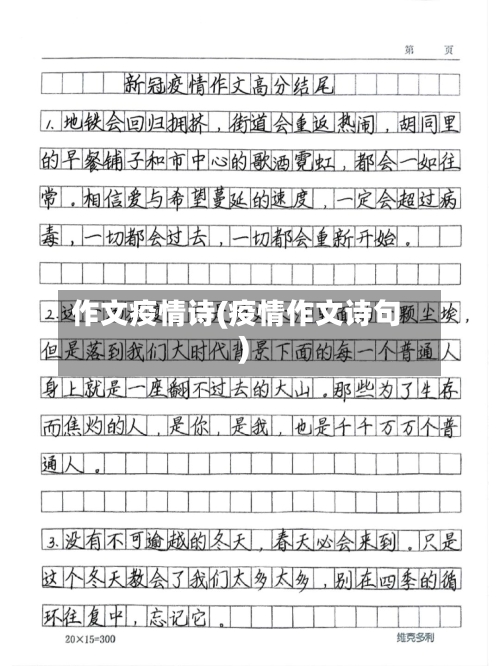 第 页
新冠疫情作文高分结尾
1.地铁会回归拥挤，街道会重返热闹，胡同里
的早餐铺子和市中心的歌酒霓虹，都会一如往
常。相信爱与希望蔓延的速度，一定会超过病
毒，一切都会过去，一切都会重新开始。
作文疫情诗(疫情作文诗句
)
2.这 颗尘埃，
但是落到我们大时代背景下面的每一个普通人
身上就是一座翻不过去的大山。那些为了生存
而焦灼的人，是你，是我，也是千千万万个普
通人。
3.没有不可逾越的冬天，春天必会来到。只是
这个冬天教会了我们太多太多，别在四季的循
环往复中，忘记它。
20×15=300
维克多利